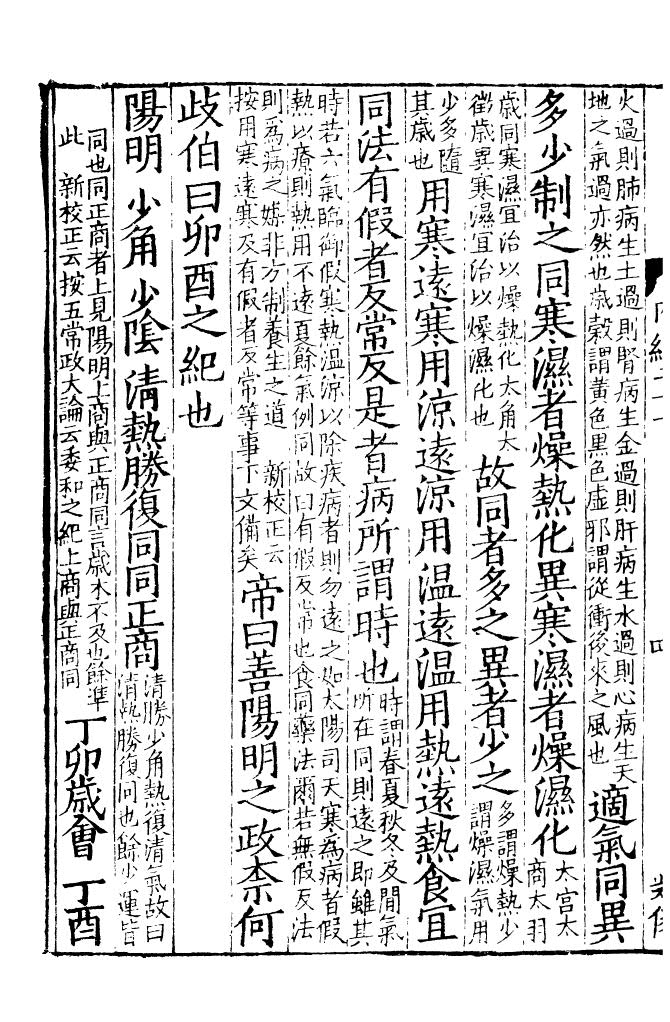 火過則肺病生土過則腎病生金過則肝病生水過則心病生天
地之氣過亦然也歲穀謂黃色黑色虛邪謂從衝後來之風也
適氣同異
多少制之同寒濕者燥熱化異寒濕者燥濕化
太宮太
商太羽
歲同寒濕宜治以燥熱化太角太
徵歲異寒濕宜治以燥濕化也
故同者多之異者少之
多謂燥熱少
謂燥濕氣用
少多隨
其歲也
用寒遠寒用涼遠涼用溫遠溫用熱遠熱食宜
同法有假者反常反是者病所謂時也
時謂春夏秋冬及間氣
所在同則遠之即雖其
時若六氣臨御假寒熱溫涼以除疾病者則勿遠之如太陽司天寒為病者假
熱以療則熱用不遠夏餘氣例同故曰有假反常也食同藥法爾若無假反法
則為病之媒非方制養生之道 新校正云
按用寒遠寒及有假者反常等事下文備矣
帝曰善陽明之政柰何
歧伯曰卯酉之紀也
陽明 少角 少陰 清熱勝復同同正商
清勝少角熱復清氣故曰
清熱勝復同也餘少運皆
同也同正商者上見陽明上商與正商同言歲木不及也餘準
此 新校正云按五常政大論云委和之紀上商與正商同
丁卯歲會 丁酉